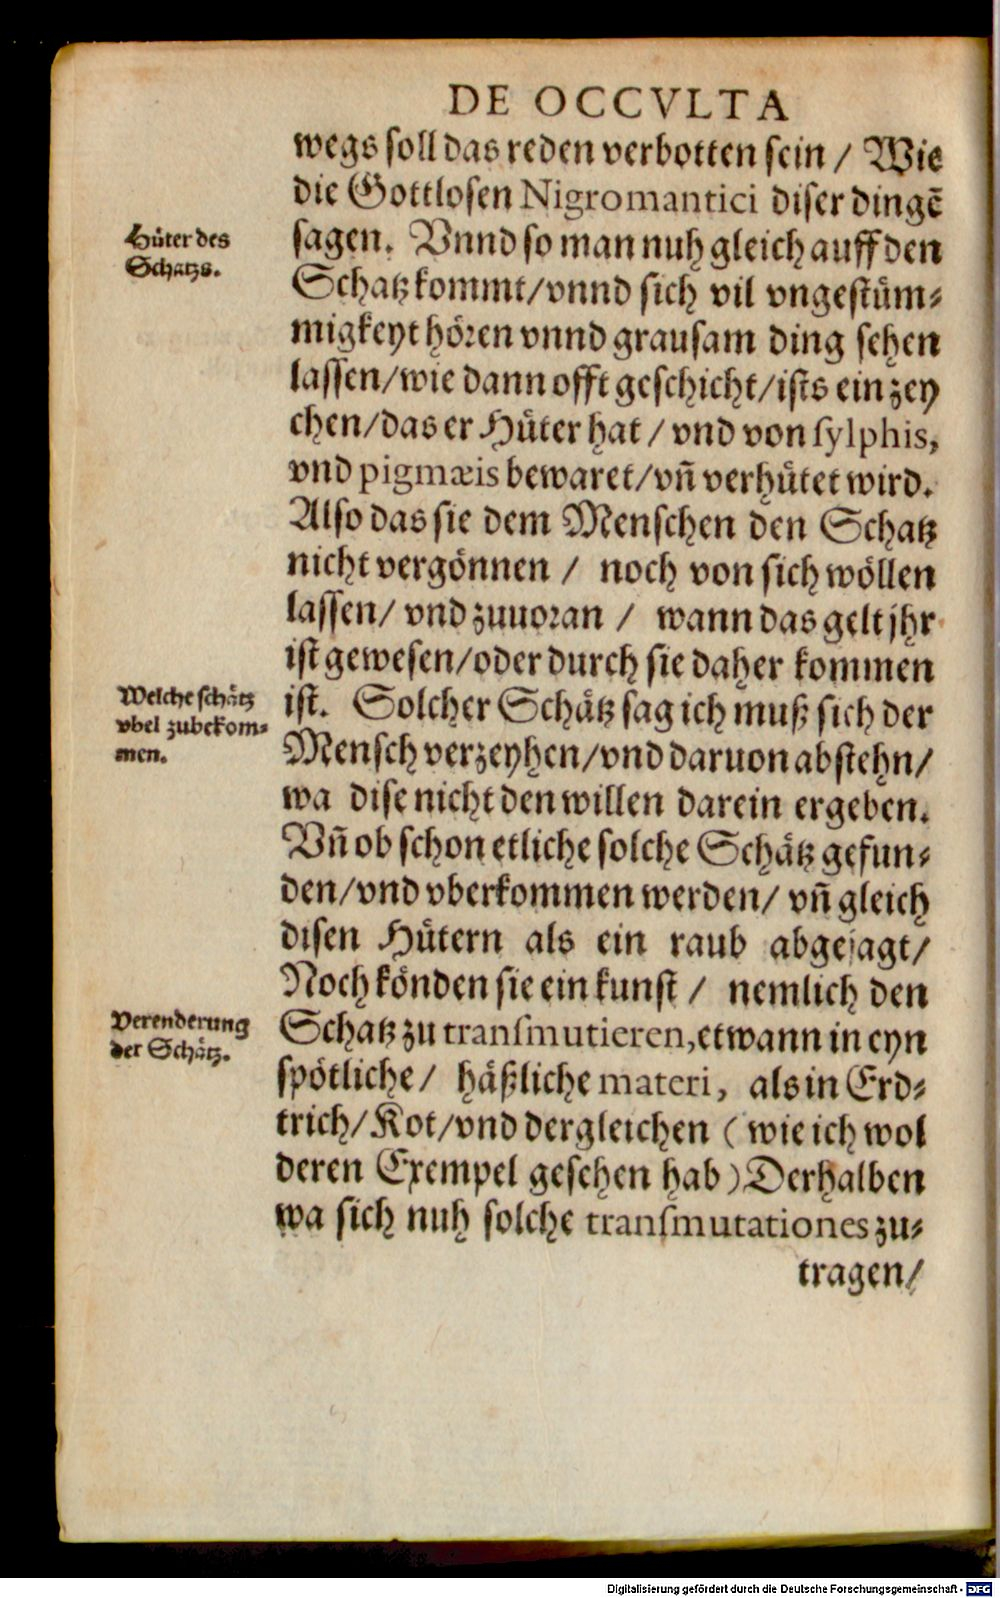 DE OCCVLTA
wegs soll das reden verbotten sein / Wie
die Gottlosen Nigromantici diser dingē
sagen. Vnnd so man nuh gleich auff den
Hüter des
Schatzs.
Schatz kommt/vnnd sich vil vngestüm⸗
migkeyt hören vnnd grausam ding sehen
lassen/wie dann offt geschicht/ists ein zey
chen/das er Hüter hat / vnd von sylphis,
vnd pigmæis bewaret/vñ verhütet wird.
Also das sie dem Menschen den Schatz
nicht vergönnen / noch von sich wöllen
lassen/ vnd zuuoran / wann das gelt jhr
ist gewesen/oder durch sie daher kommen
ist. Solcher Schätz sag ich muß sich der
Welche schätz
vbel zubekom⸗
men.
Mensch verzeyhen/vnd daruon abstehn/
wa dise nicht den willen darein ergeben.
Vñ ob schon etliche solche Schätz gefun⸗
den/vnd vberkommen werden/ vñ gleich
disen Hütern als ein raub abgejagt/
Noch könden sie ein kunst / nemlich den
Schatz zu transmutieren, etwann in eyn
Verenderung
der Schätz.
spötliche/ häßliche materi, als in Erd⸗
trich/Kot/vnd dergleichen ( wie ich wol
deren Exempel gesehen hab ) Derhalben
wa sich nuh solche transmutationes zu⸗
tragen/
Digitalisierung gefördert durch die Deutsche Forschungsgemeinschaft - DFG